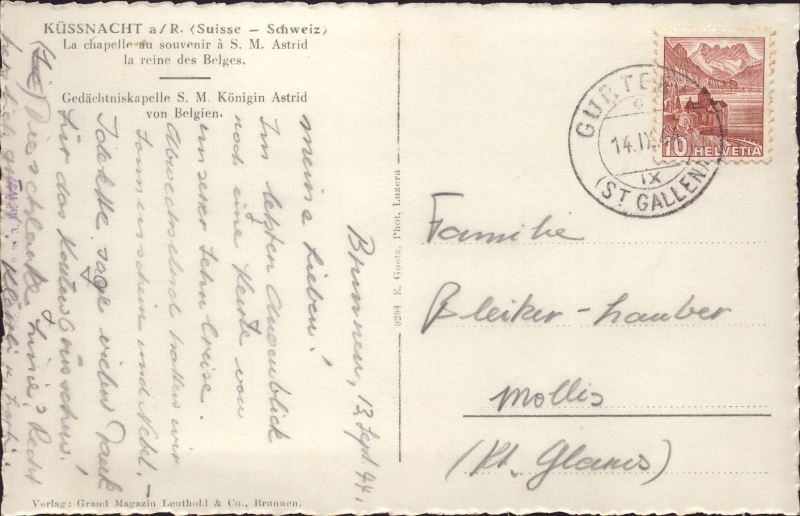 KÜSSNACHT a/R. (Suisse – Schweiz)
La chapelle au souvenir à S. M. Astrid
la reine des Belges.
Gedächtniskapelle S. M. Königin Astrid
von Belgien.
Brunnen, 13. Sept. 44.
meine Lieben!
Im letzten Augenblick
noch eine Karte von
unserer Reise.
Abwechselnd hatten wir
Sonnenschein und Nebel. –
sage vielen Dank
für das
Die schlanke Linie,
9294 E. Goetz, Phot, Luzern
Verlag: Grand Magazin Leuthold & Co., Brunnen.
GURTE
14.IX.
IX
(ST GALLEN)
10 HELVETIA
Familie
Bleiker-Lauber
Mollis
(Kt. Glarus)